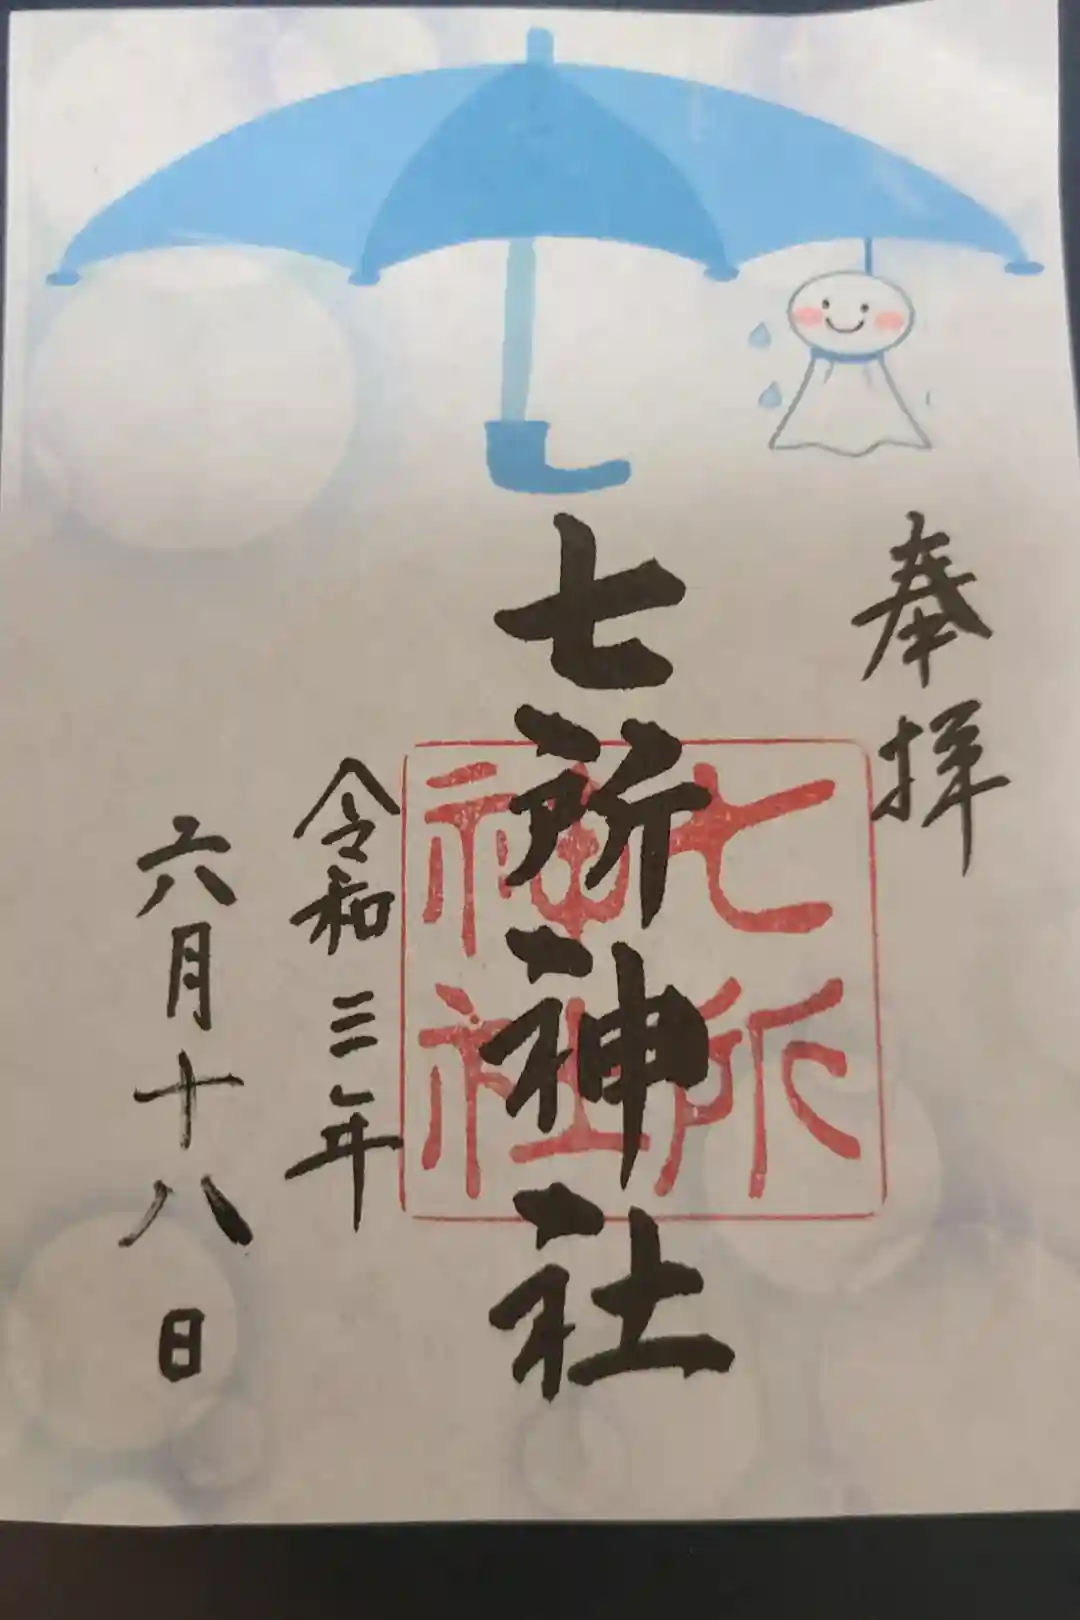 奉拝
七所神社
七所
神社
令和三年
六月十八日